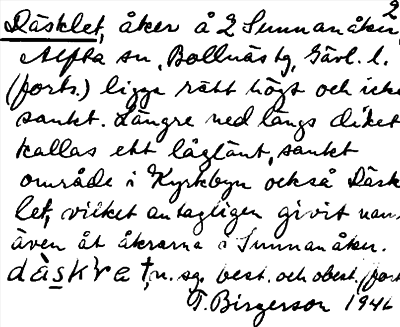 2
Däsklet, åker å 2 Sunnanåker,
Alfta sn, Bollnäs tg, Gävl. l.
(forts.) ligga rätt högt och icke
sankt. Längre ned längs diket
kallas ett låglänt, sankt
område i Kyrkbyn också Däsk-
let, vilket antagligen givit namn
även åt åkrarna i Sunnanåker.
dàskret, n. sg. best. och obest. (forts
T. Birgerson 1946